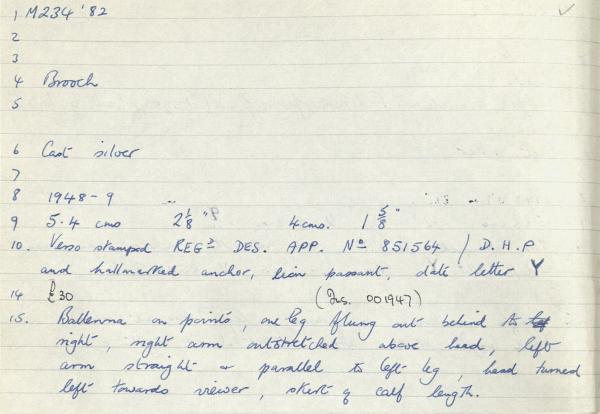 1 M234 '82
2
3
4 Brooch
5
6 Cast silver
7
8 1948-9
9 5.4 cms 2 1/8" 4 cms. 1 5/8"
10. Verso stamped REGD DES. APP. No 851564 / D.H.P
and hallmarked anchor, lion passant, date letter Y
14 £30 (Ins. 001947)
15. Ballerina on points, one leg flung out behind to
right, right arm outstretched above head, left
arm straight & parallel to left leg, head turned
left towards viewer, skirt of calf length.